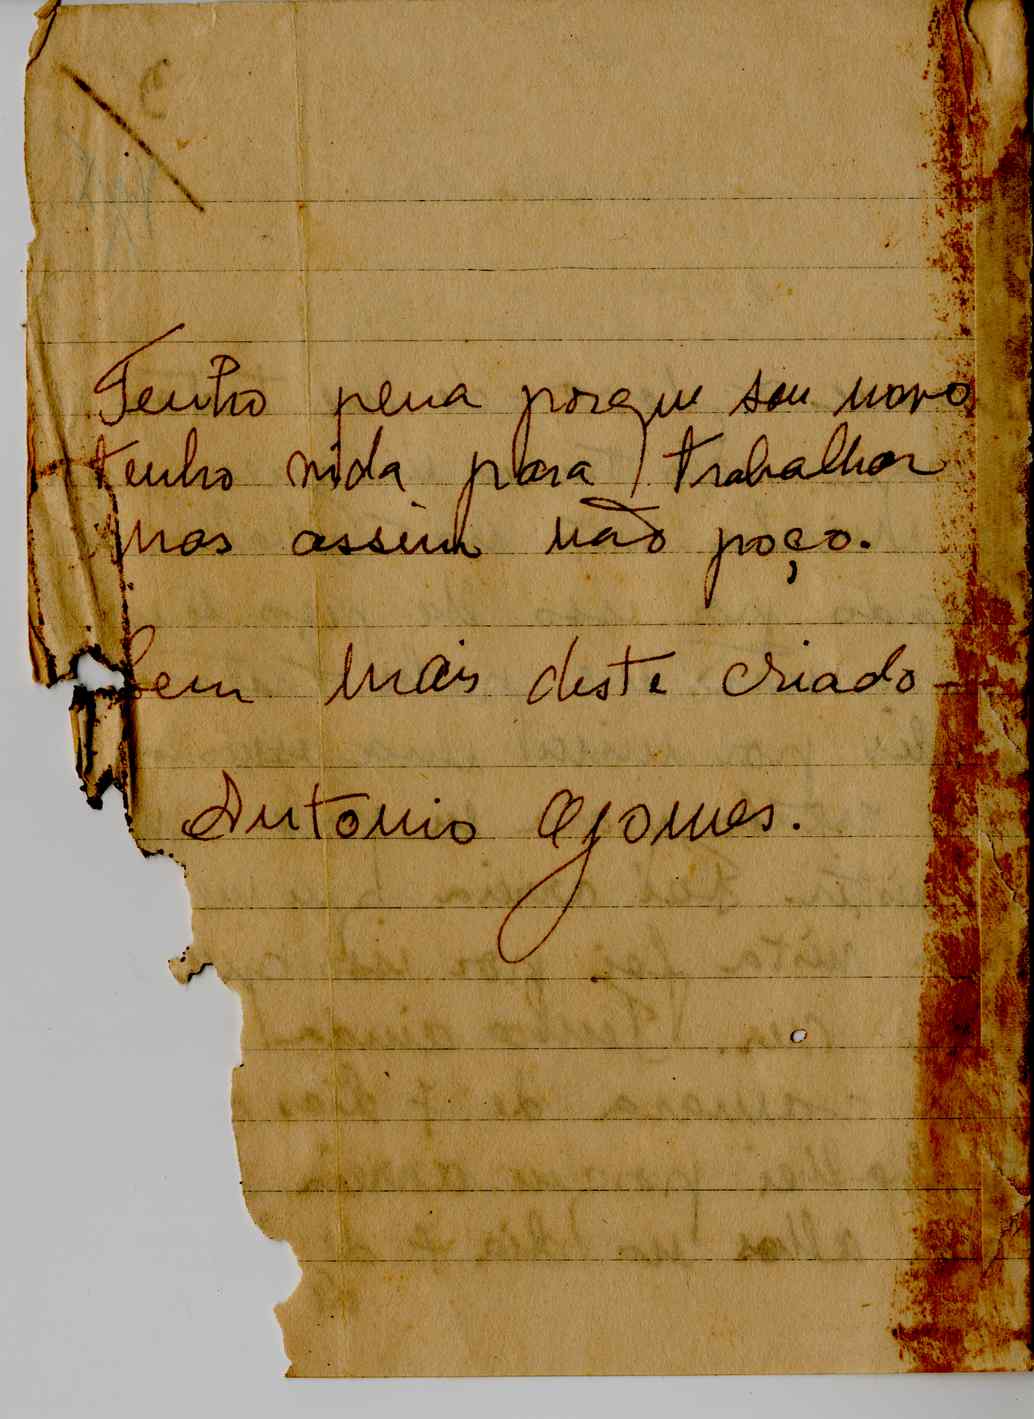 Tenho pena porque sou novo
tenho vida para trabalhar
mas assim não poço.
Sem mais deste criado
Antonio Gomes.